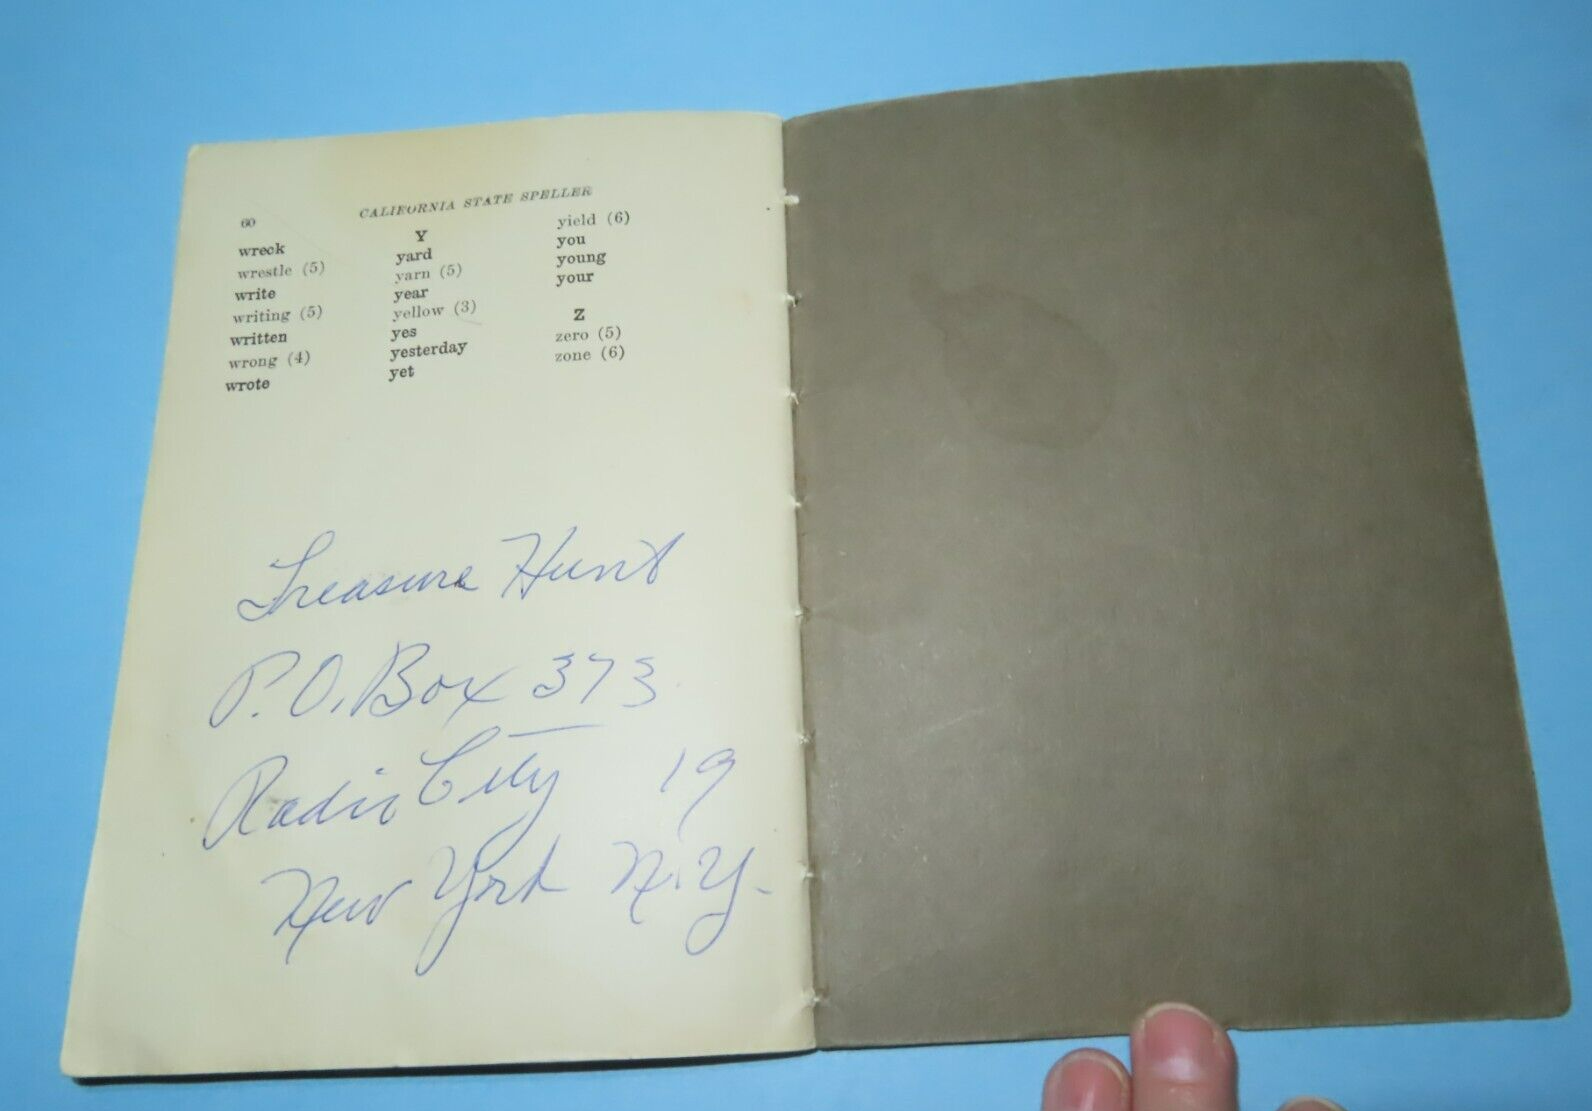 60
CALIFORNIA STATE SPELLER
wreck
wrestle (5)
write
writing (5)
written
wrong (4)
wrote
Y
yard
yarn (5)
year
yellow (3)
yes
yesterday
yet
yield (6)
you
young
your
Z
zero (5)
zone (6)
Treasure Hunt
P.O. Box 373
Radio City 19
New York N.Y.